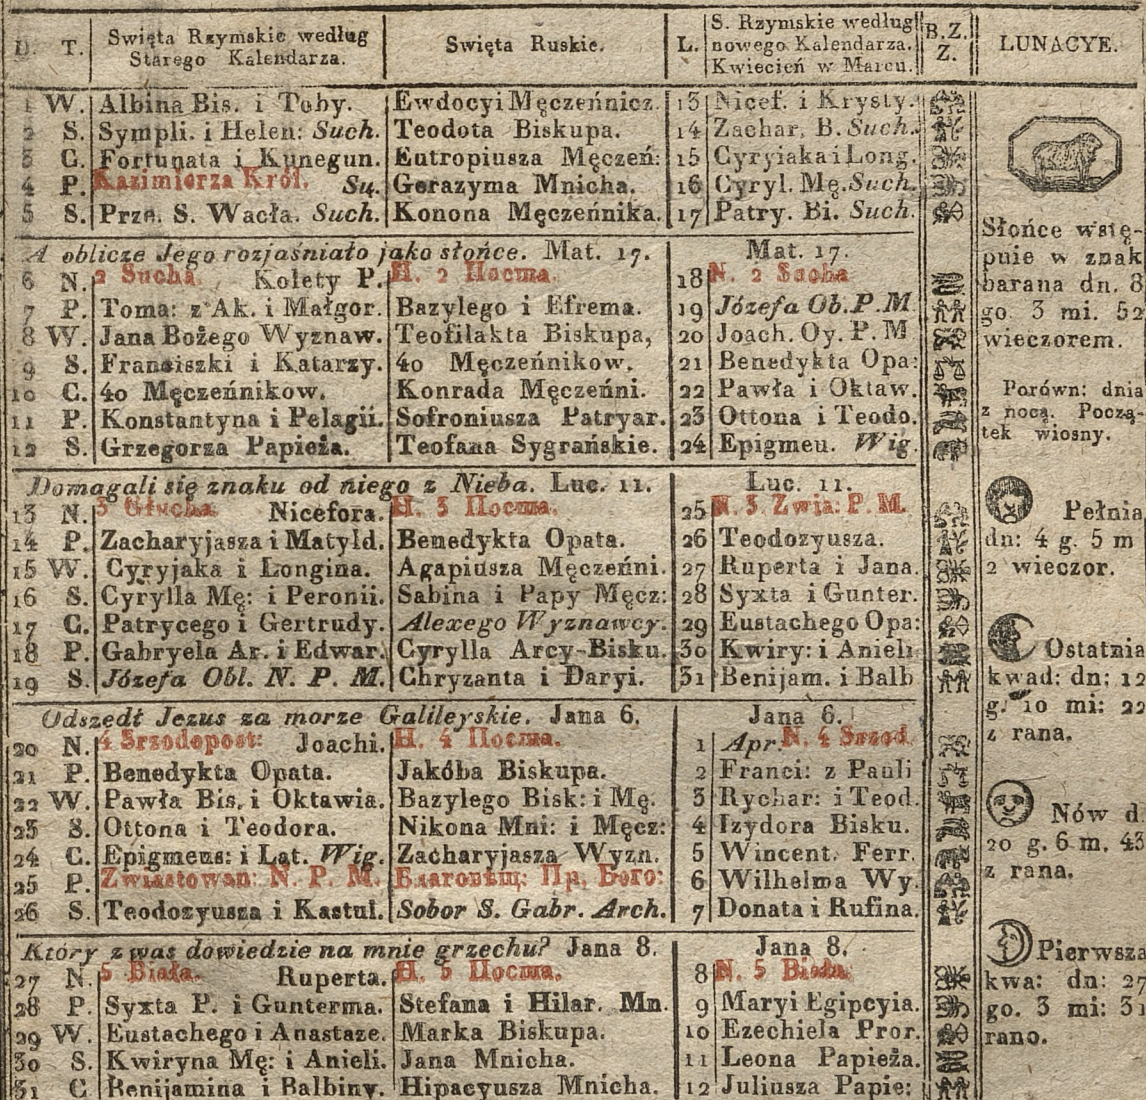 D. T. Swięta Rzymskie według Starego Kalendarza. Swięta Ruskie. L. S. Rzymskie według nowego Kalendarza. Kwiecień w Marcu. B.Z. Z. LUNACYE.
1 W. Albina Bis. i Toby. Ewdocyi Męczeńnicz. 13 Nicef. i Krysty.
2 S. Sympli. i Helen: Such. Teodota Biskupa. 14 Zachar. B. Such.
3 C. Fortunata i Kunegun. Eutropiusza Męczeń: 15 Cyryiaka i Long.
4 P. Kazimierza Król. Są. Gerazyma Mnicha. 16 Cyryl. Mę. Such.
5 S. Prze. S. Wacła. Such. Konona Męczeńnika. 17 Patry. Bi. Such.
A oblicze Jego rozjaśniało jako słońce. Mat. 17. Mat. 17.
6 N. 2 Sucha. Kolety P. Н. 2 Посша. 18 N. 2 Sucha
7 P. Toma: z Ak. i Małgor. Bazylego i Efrema. 19 Józefa Ob. P. M
8 W. Jana Bożego Wyznaw. Teofilakta Biskupa, 20 Joach. Oy. P. M
9 S. Franciszki i Katarzy. 40 Męczeńnikow. 21 Benedykta Opa:
10 C. 40 Męczeńnikow. Konrada Męczeńni. 22 Pawła i Oktaw.
11 P. Konstantyna i Pelagii. Sofroniusza Patryar. 23 Ottona i Teodo.
12 S. Grzegorza Papieża. Teofana Sygrańskie. 24 Epigmeu. Wig.
Domagali się znaku od niego z Nieba. Luc. 11. Luc. 11.
13 N. 3 Głucha. Nicefora. Н. 3 Посша. 25 N. 3 Zwia: P. M.
14 P. Zacharyjasza i Matyld. Benedykta Opata. 26 Teodozyusza.
15 W. Cyryjaka i Longina. Agapiusza Męczeńni. 27 Ruperta i Jana.
16 S. Cyrylla Mę: i Peronii. Sabina i Papy Męcz: 28 Syxta i Gunter.
17 C. Patrycego i Gertrudy. Alexego Wyznawcy. 29 Eustachego Opa:
18 P. Gabryela Ar. i Edwar. Cyrylla Arcy-Bisku. 30 Kwiry: i Anieli
19 S. Józefa Obl. N. P. M. Chryzanta i Daryi. 31 Benijam. i Balb
Odszedł Jezus za morze Galileyskie. Jana 6. Jana 6.
20 N. 4 Srzodopost: Joachi. Н. 4 Посша. 1 Apr. N. 4 Srzod.
21 P. Benedykta Opata. Jakóba Biskupa. 2 Franci: z Pauli
22 W. Pawła Bis. i Oktawia. Bazylego Bisk: i Mę. 3 Rychar: i Teod.
23 S. Ottona i Teodora. Nikona Mni: i Męcz: 4 Izydora Bisku.
24 C. Epigmeus: i Lat. Wig. Zacharyjasza Wyzn. 5 Wincent. Ferr.
25 P. Zwiastowan: N. P. M. Благовѣщ: Пр. Бого: 6 Wilhelma Wy.
26 S. Teodozyusza i Kastul. Sobor S. Gabr. Arch. 7 Donata i Rufina.
Który z was dowiedzie na mnie grzechu? Jana 8. Jana 8.
27 N. 5 Biała. Ruperta. Н. 5 Посша. 8 N. 5 Biała
28 P. Syxta P. i Gunterma. Stefana i Hilar. Mn. 9 Maryi Egipcyia.
29 W. Eustachego i Anastaze. Marka Biskupa. 10 Ezechiela Pror.
30 S. Kwiryna Mę: i Anieli. Jana Mnicha. 11 Leona Papieża.
31 C Benijamina i Balbiny. Hipacyusza Mnicha. 12 Juliusza Papie:
Słońce wstę-
puie w znak
barana dn. 8
go. 3 mi. 52
wieczorem.
Porówn: dnia
z nocą. Począ-
tek wiosny.
Pełnia
dn: 4 g. 5 m
2 wieczor.
Ostatnia
kwad: dn: 12
g. 10 mi: 22
z rana.
Nów d.
20 g. 6 m. 45
z rana.
Pierwsza
kwa: dn: 27
go. 3 mi: 31
rano.